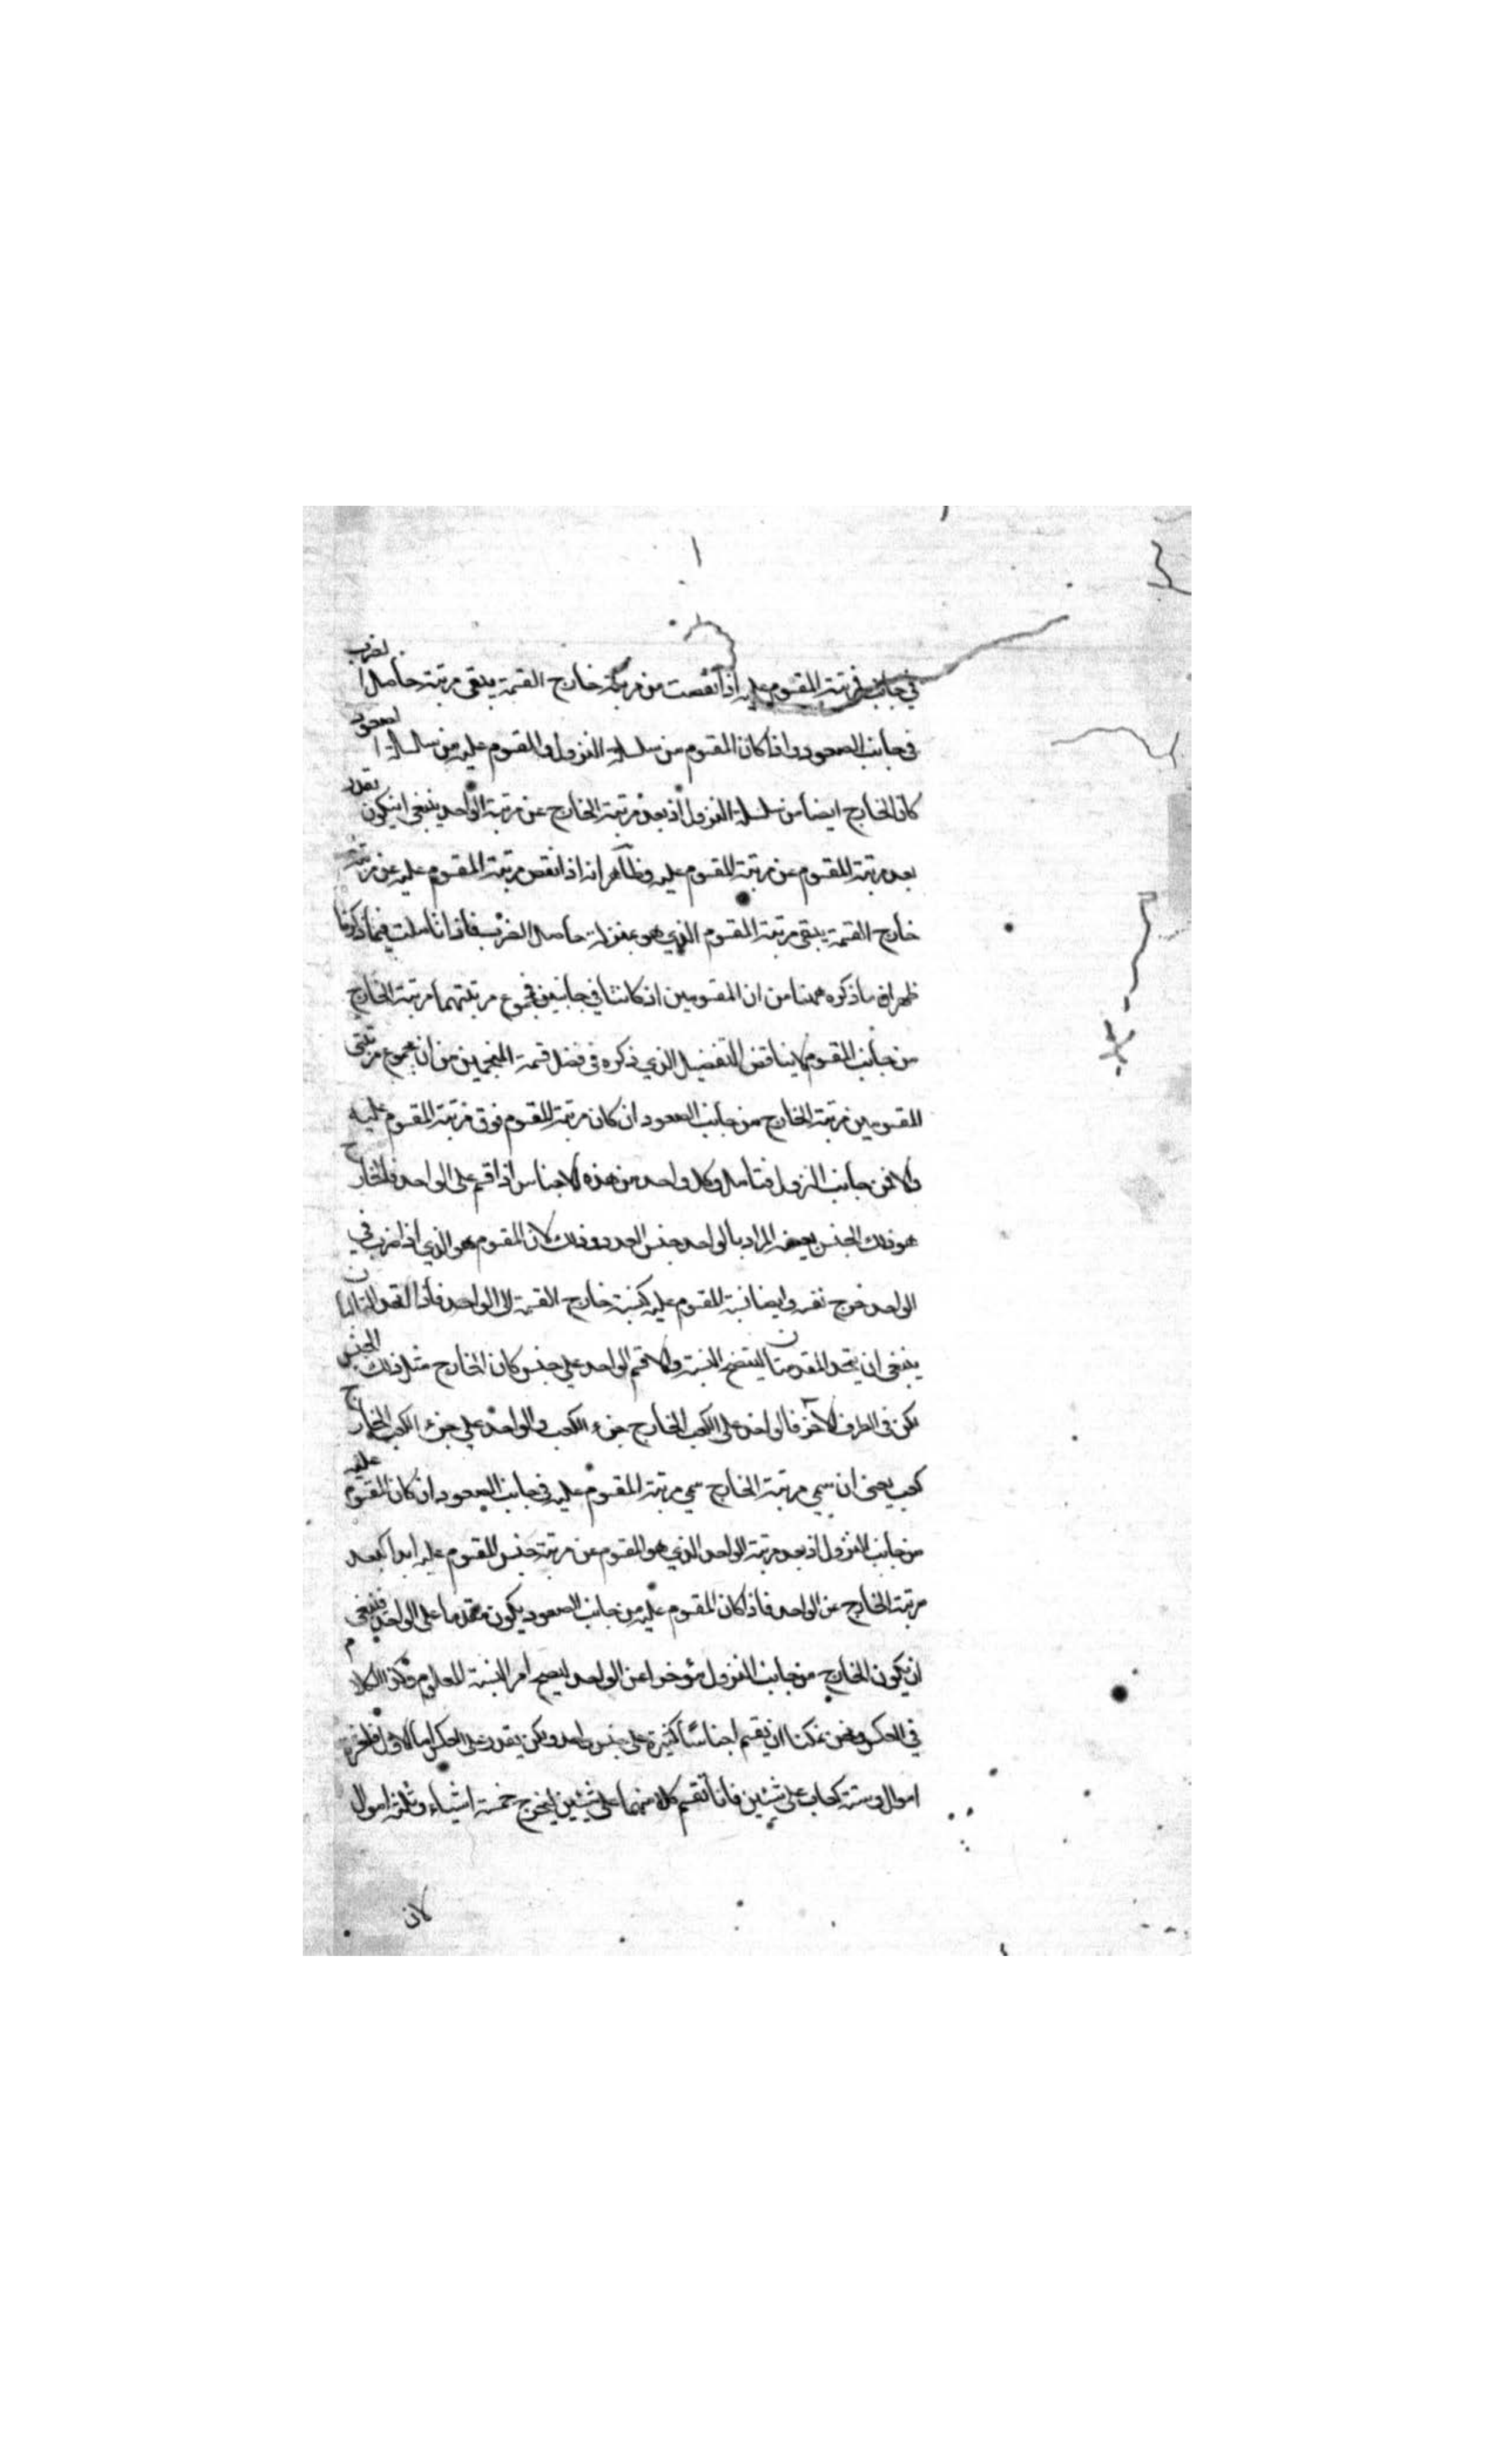 في جانب فمرتبة المقسوم عليه اذا نقصت من مرتبة خارج القسمة يبقى مرتبة حاصل الضرب
في جانب الصعود واذا كان المقسوم من سلسلة النزول والمقسوم عليه من سلسلة الصعود
كان الخارج ايضا من سلسلة النزول اذ بعد مرتبة الخارج عن مرتبة الواحد ينبغي ان يكون بقدر
بعد مرتبة المقسوم عن مرتبة المقسوم عليه وظاهر انه اذا نقص مرتبة المقسوم عليه عن مرتبة
خارج القسمة يبقى مرتبة المقسوم الذي هو بمنزلة حاصل الضرب فاذا تاملت فيما ذكرنا
ظهر ان ما ذكره ههنا من ان المقسومين ان كانتا في جانبين فمجموع مرتبتهما مرتبة الخارج
من جانب المقسوم لا يناقض التفضيل الذي ذكره في فصل قسمة المنجمين من ان مجموع مرتبتي
المقسومين مرتبة الخارج من جانب الصعود ان كان مرتبة المقسوم فوق مرتبة المقسوم عليه
والا فمن جانب النزول فتامل وكل واحد من هذه الاجناس اذا قسم على الواحد فالخارج
هو ذلك الجنس بعينه المراد بالواحد جنس العدد وذلك لان المقسوم هو الذي اذا ضرب في
الواحد خرج نفسه وايضا نسبة المقسوم عليه كنسبة خارج القسمة الى الواحد فاذا اتحد التاليان
ينبغي ان يتحد المقدمتان ليتضح النسبة والا قسم الواحد على جنس كان الخارج مثل ذلك الجنس
لكن في الطرف الاخر فالواحد على الكعب الخارج جزء الكعب والواحد على جزء الكعب الخارج
كعب يعني ان سمي مرتبة الخارج سمي مرتبة المقسوم عليه في جانب الصعود ان كان المقسوم عليه
من جانب النزول اذ بعد مرتبة الواحد الذي هو المقسوم عن مرتبة جنس المقسوم عليه ابدا كبعد
مرتبة الخارج عن الواحد فاذا كان المقسوم عليه من جانب الصعود يكون مقدما على الواحد فينبغي
ان يكون الخارج من جانب النزول مؤخرا عن الواحد ليصح امر النسبة المعلوم وكذا الكلام
في العكس ونحن يمكننا ان يقسم اجناسا كثيرة على جنس واحد ولكن يقدر على العكس اما الاول
اموال وستة كعاب على شيئين فانا نقسم كلا منهما على شيئين ليخرج خمسة اشياء وثلثة اموال
لان